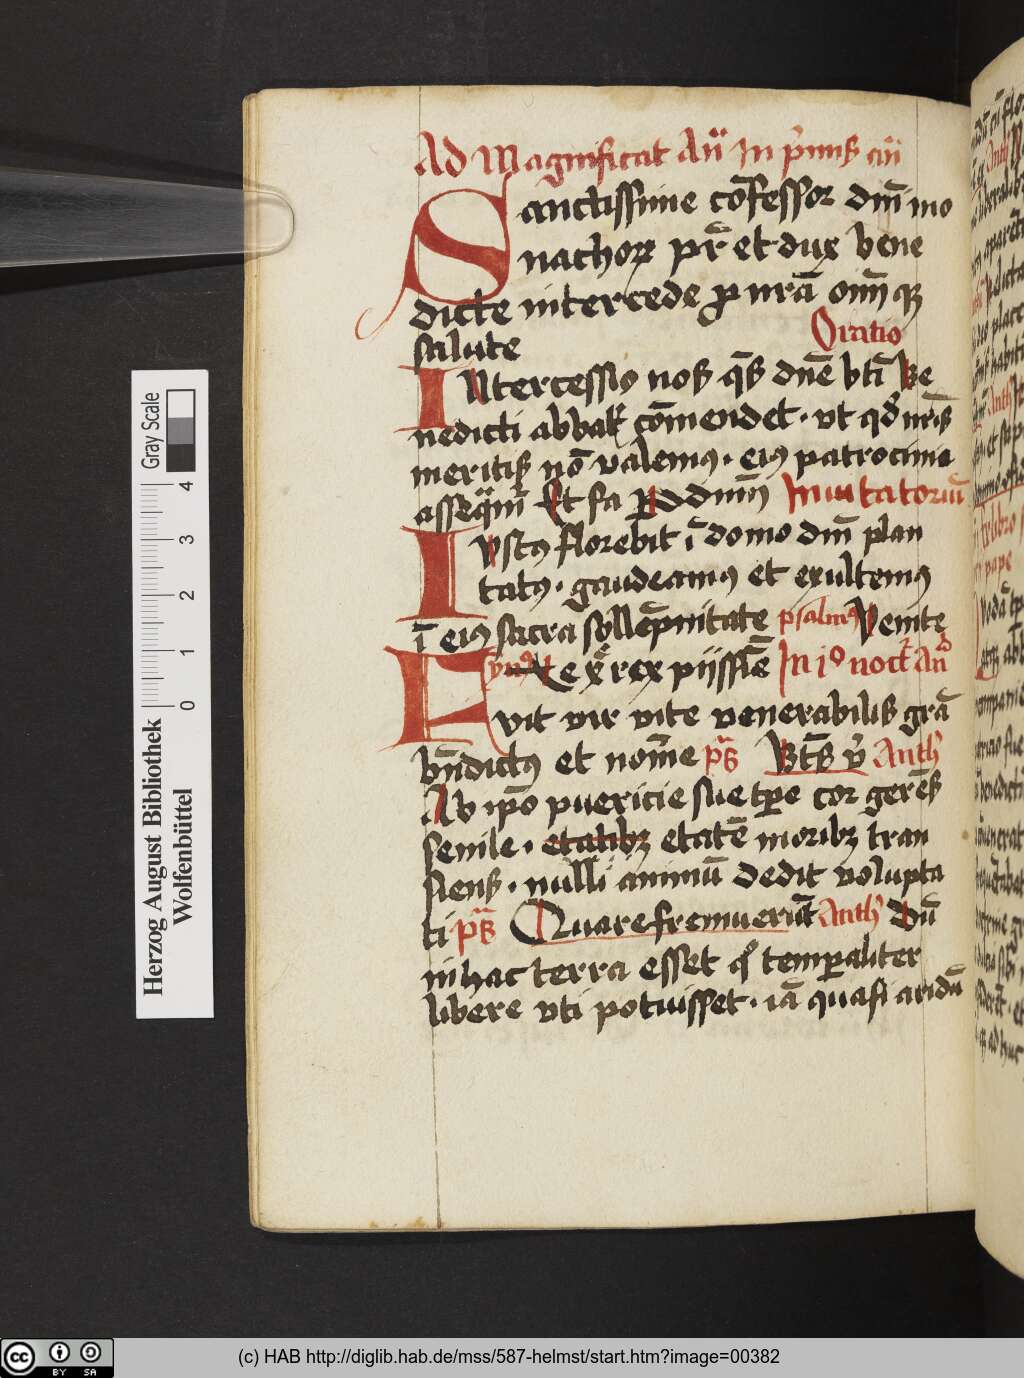 Ad Magnificat Añ In p̄mis añ
Sanctissime cōfessor dn̄i mo
nachoꝝ pr̄ et dux bene
dicte intercede ꝓ nr̄a om̄iqꝫ
salute
Oratio
INtercessio nos q̄s dn̄e bt̄i Be
nedicti abbatꝭ cōmendet · vt qd̓ nr̄is
meritis nō valemꝰ · eiꝰ patrocinio
asseq̄m̄ Et fa ꝑ dominū Inuitatoriū
Iustꝰ florebit ī domo dn̄i plan
tatꝰ · gaudeamꝰ et exultemꝰ
ī eiꝰ sacra sollēpnitate psalmꝰ Venite
ympnꝰ xe rex pijssīe In jº noct̄ Añ
Fuit vir vite venerabilis grā
bn̄dictꝰ et nomīe ps̄ Bt̄s v̓ Anthᵃ
Ab ip̄o puericie sue tp̄e cor gerēs
senile · etatibꝫ etatē moribꝫ tran
siens · nulli animū dedit volupta
ti ps̄ Quare fremuerūt Anthᵃ Dū
in hac terra esset qͦ temꝑaliter
libere vti potuisset · iā quasi aridū
Gray Scale
4 3 2 1 0
Herzog August Bibliothek
Wolfenbüttel
cc BY SA
(c) HAB http://diglib.hab.de/mss/587-helmst/start.htm?image=00382